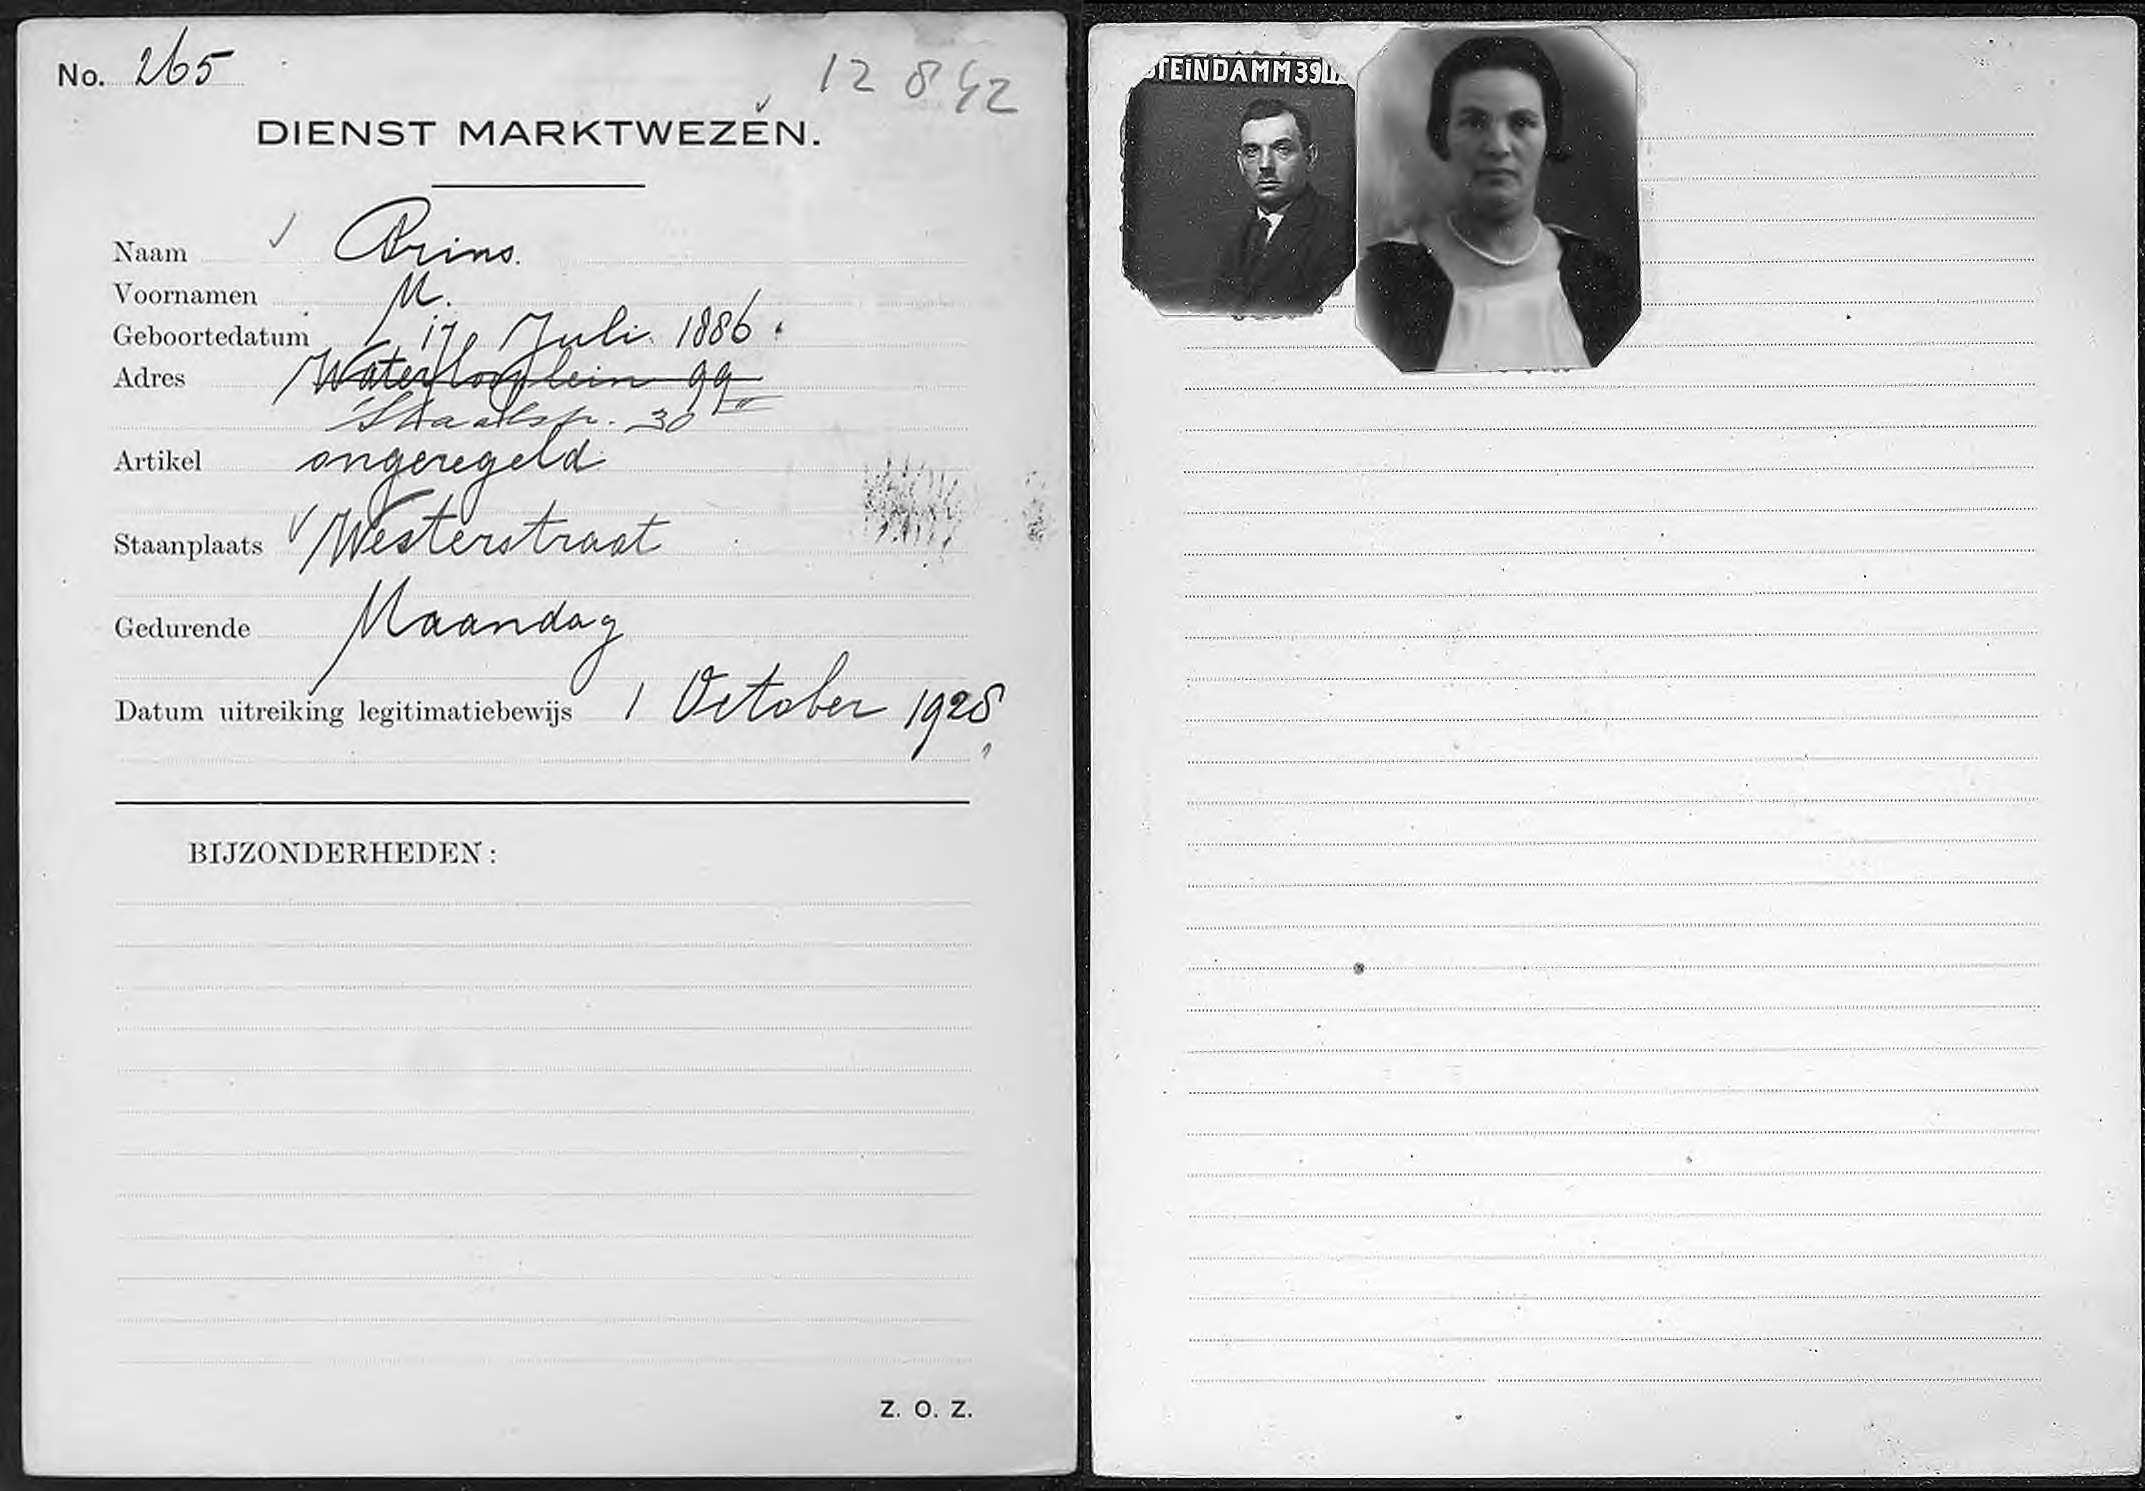 No. 265
12 8 42
DIENST MARKTWEZEN.
Naam Prins.
Voornamen M.
Geboortedatum 17 Juli 1886.
Adres Waterlooplein 99
Staalstr. 30 III
Artikel ongeregeld
Staanplaats Westerstraat
Gedurende Maandag
Datum uitreiking legitimatiebewijs 1 October 1928
BIJZONDERHEDEN:
Z. O. Z.
STEINDAMM 39